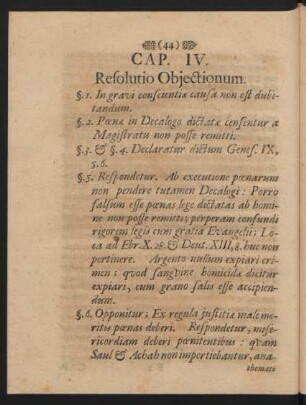 (44)
CAP. IV.
Resolutio Objectionum.
§.1. In gravi conscientiæ causâ non est dubi-
tandum.
§.2. Pœnæ in Decalogo dictatæ censentur a
Magistratu non posse remitti.
§.3. & §.4. Declaratur dictum Genes. IX,
5.6.
§.5. Respondetur. Ab executione pœnarum
non pendere tutamen Decalogi: Porro
falsum esse pœnas lege dictatas ab homi-
ne non posse remitti; perperam confundi
rigorem legis cum gratia Evangelii; Lo-
ca ad Ebr. X. 28. & Deut. XIII, 8. huc non
pertinere. Argento nullum expiari cri-
men; qvod sangvine homicidæ dicitur
expiari, cum grano salis esse accipien-
dum.
§.6. Opponitur; Ex regula justitiæ male me-
ritis pœnas deberi. Respondetur, mise-
ricordiam deberi pœnitentibus: qvam
Saul & Achab non impertiebantur, ana-
themati